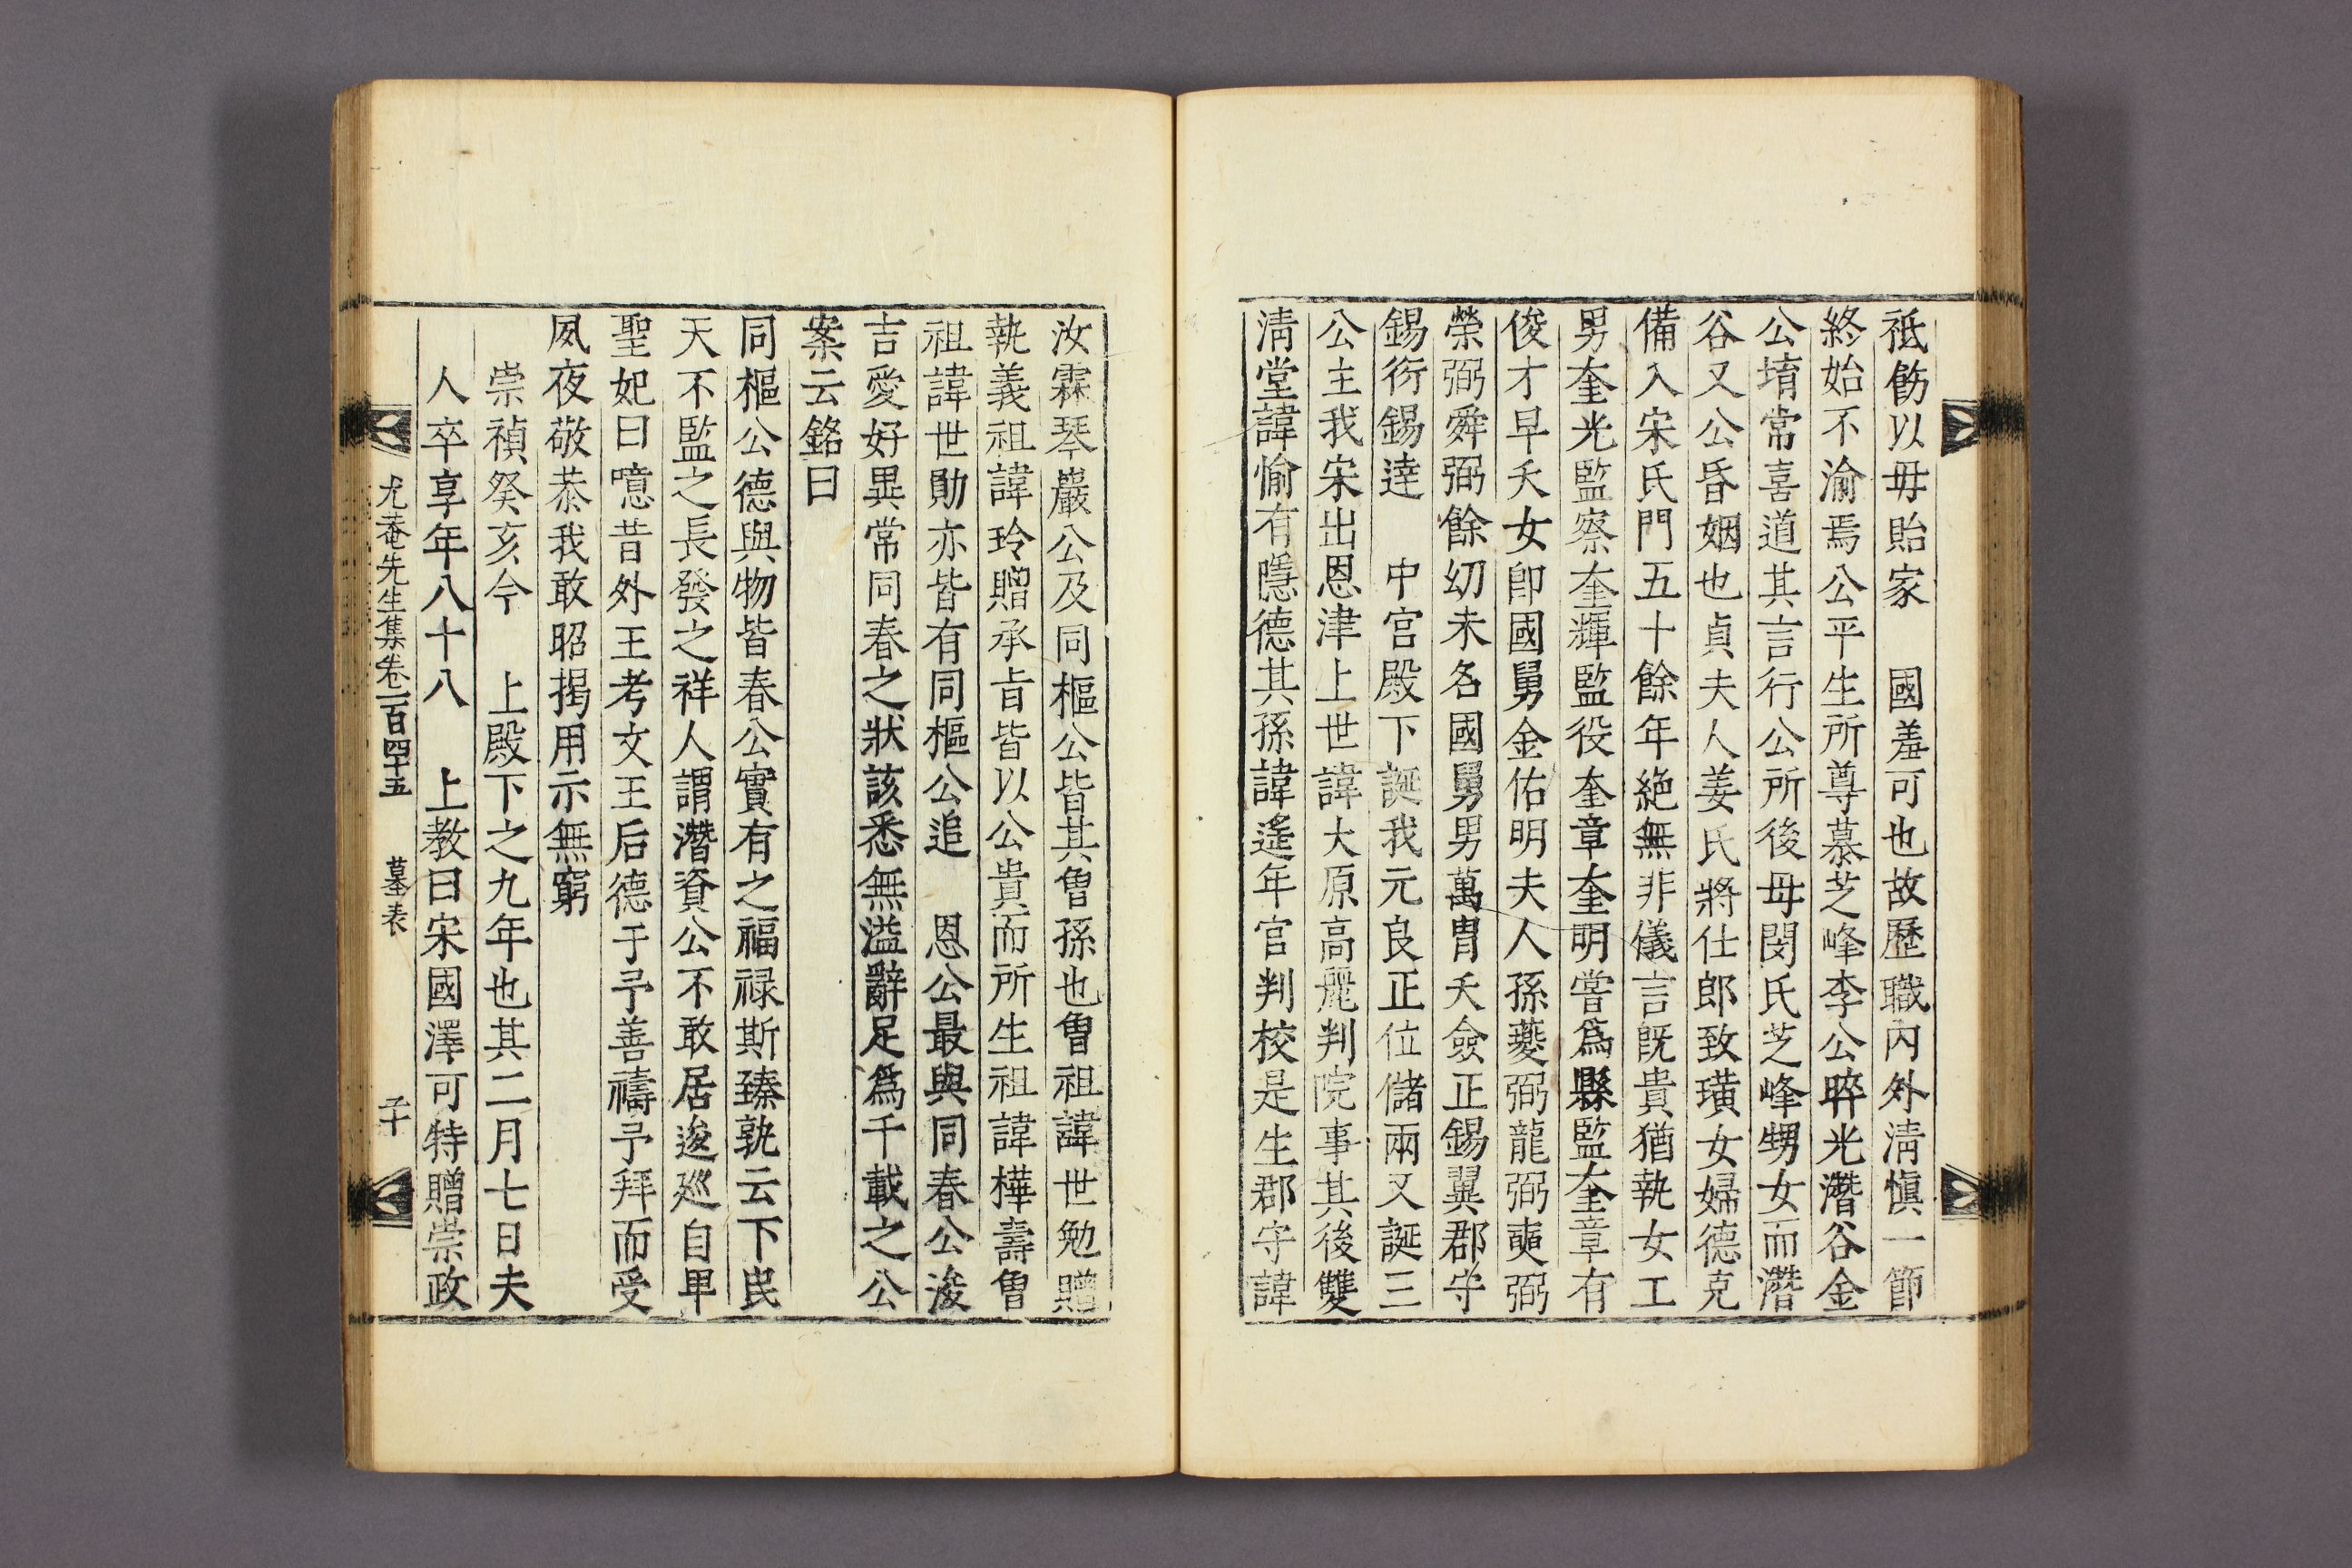 祗飭以毋貽家　國羞可也故歷職內外淸愼一節
終始不渝焉公平生所尊慕芝峰李公晬光潛谷金
公堉常喜道其言行公所後母閔氏芝峰甥女而潛
谷又公昏姻也貞夫人姜氏將仕郎致璜女婦德克
備入宋氏門五十餘年絶無非儀言旣貴猶執女工
男奎光監察奎輝監役奎章奎明嘗爲縣監奎章有
俊才早夭女卽國舅金佑明夫人孫夔弼龍弼奭弼
榮弼舜弼餘幼未名國舅男萬冑夭僉正錫翼郡守
錫衍錫達　中宮殿下誕我元良正位儲兩又誕三
公主我宋出恩津上世諱大原高麗判院事其後雙
淸堂諱愉有隱德其孫諱遙年官判校是生郡守諱
汝霖琴巖公及同樞公皆其曾孫也曾祖諱世勉贈
執義祖諱玲贈承旨皆以公貴而所生祖諱樺壽曾
祖諱世勛亦皆有同樞公追　恩公最與同春公浚
吉愛好異常同春之狀該悉無溢辭足爲千載之公
案云銘曰
同樞公德與物皆春公實有之福祿斯臻孰云下民
天不監之長發之祥人謂潛資公不敢居逡巡自卑
聖妃曰噫昔外王考文王后德于予善禱予拜而受
夙夜敬恭我敢昭揭用示無窮
崇禎癸亥今　上殿下之九年也其二月七日夫
人卒享年八十八　上敎曰宋國澤可特贈崇政
尤菴先生集卷一百四十五　墓表　二十